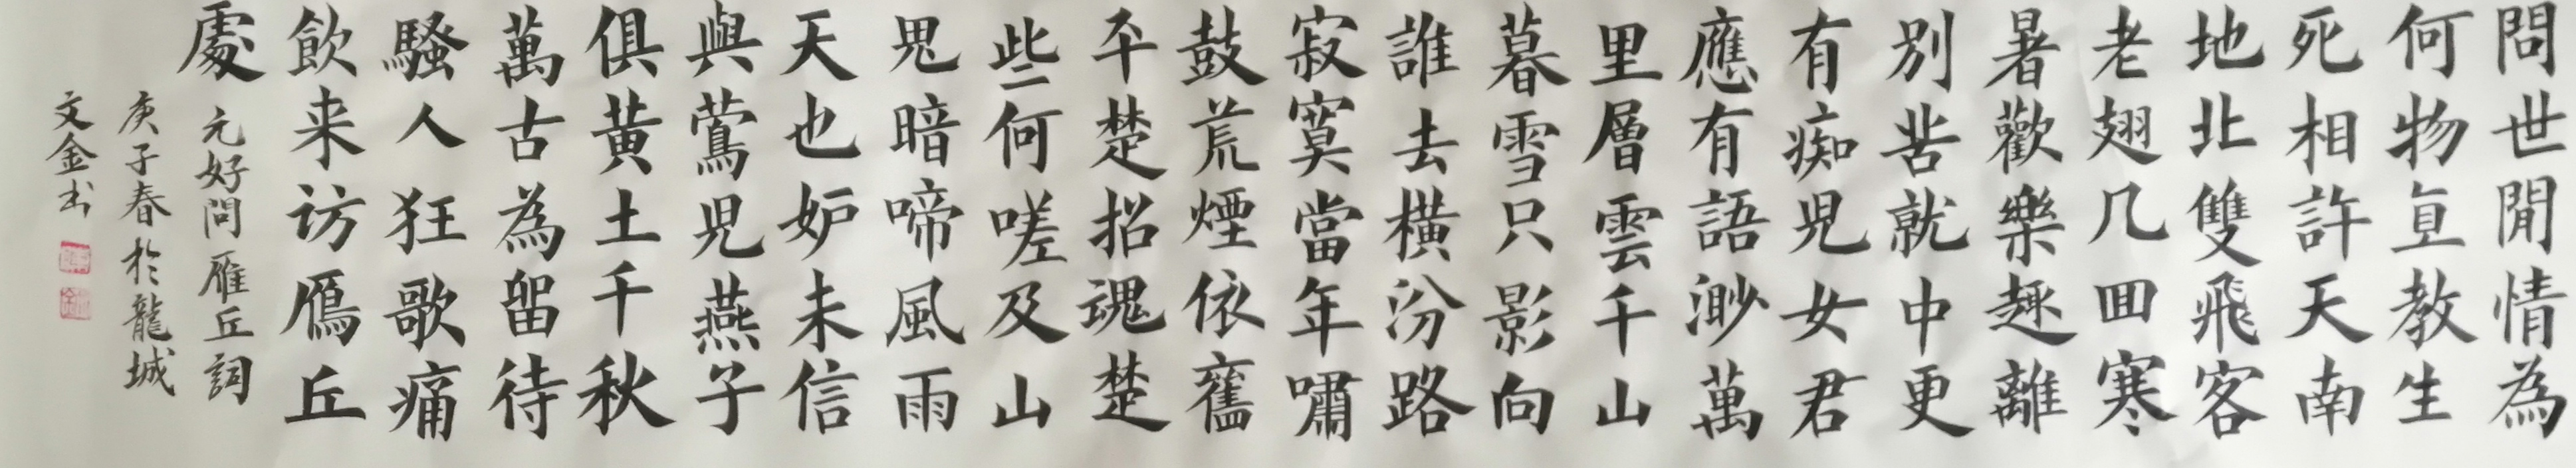 問世閒情為
何物直教生
死相許天南
地北雙飛客
老翅几回寒
暑歡樂趣離
別苦就中更
有痴児女君
應有語渺萬
里層雲千山
暮雪只影向
誰去橫汾路
寂寞當年嘯
鼓荒煙依舊
平楚招魂楚
些何嗟及山
鬼暗啼風雨
天也妒未信
與鶯児燕子
俱黃土千秋
萬古為留待
騷人狂歌痛
飲来访鴈丘
處 元好問雁丘詞
庚子春於龍城
文金书